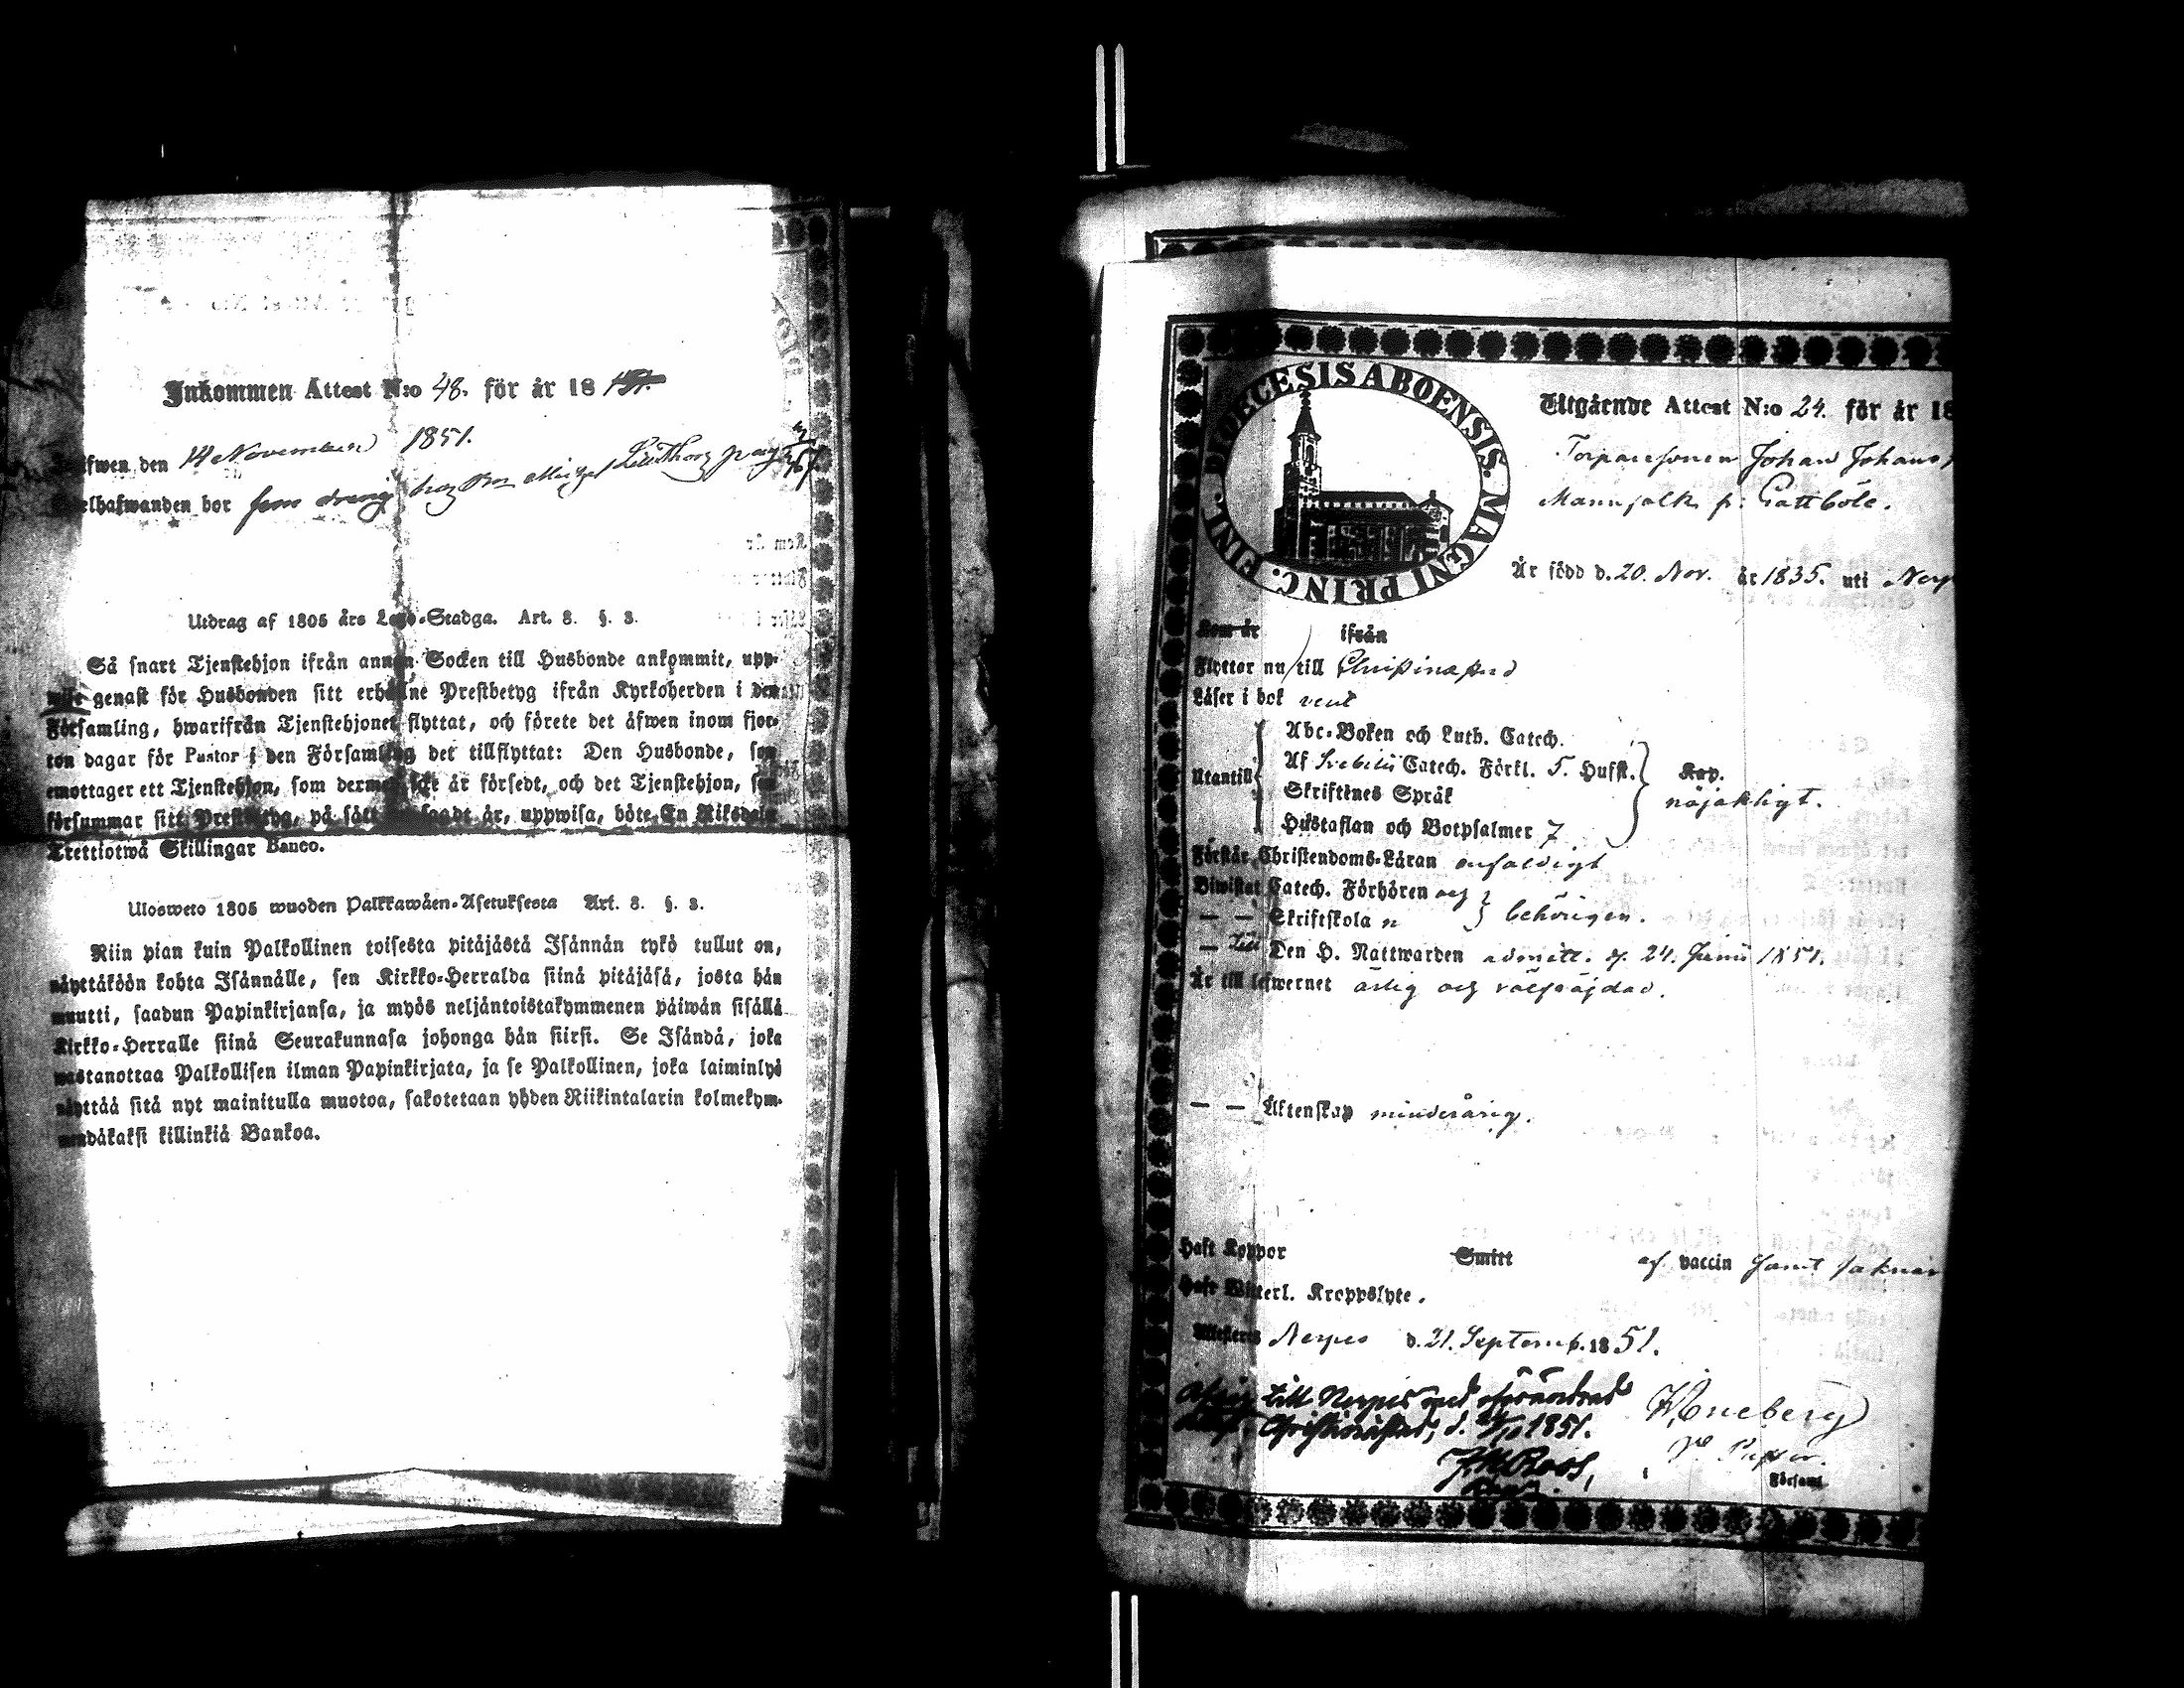 Inkommen Attest N:o 48. för år 18
fwen den 14 November 1851.
elhafwanden bor som dräng hos
Utdrag af 1805 års Lego-Stadga. Art. 8. §. 3.
Så snart Tjenstehjon ifrån annan Socken till Husbonde ankommit, upp-
wise genast för Husbonden sitt erhållne Prestbetyg ifrån Kyrkoherden i den
Församling, hwarifrån Tjenstehjonet flyttat, och förete det äfwen inom fjor-
ton dagar för Pastor i den Församling det tillflyttat: Den Husbonde, som
emottager ett Tjenstehjon, som dermed icke är försedt, och det Tjenstehjon, som
försummar sitt Prestbetyg, på sätt sagdt är, uppwisa, böte En Riksdaler
Trettiotwå Skillingar Banco.
Ulosweto 1805 wuoden Palkkawäen-Asetuksesta Art. 8. §. 3.
Niin pian kuin Palkollinen toisesta pitäjästä Isännän tykö tullut on,
näyttäköön kohta Isännälle, sen Kirkko-Herralda siinä pitäjäsä, josta hän
muutti, saadun Papinkirjansa, ja myös neljäntoistakymmenen päiwän sisällä
Kirkko-Herralle siinä Seurakunnasa johonga hän siirsi. Se Isändä, joka
wastanottaa Palkollisen ilman Papinkirjata, ja se Palkollinen, joka laiminlyö
näyttää sitä nyt mainitulla muotoa, sakotetaan yhden Riikintalarin kolmekym-
mendäkaksi killinkiä Bankoa.
DIOECESIS ABOENSIS. MAGNI PRINC. FINL.
Utgående Attest N:o 24. för år 18
Torparesonen Johan Johans
Mannfolk fr: Gottböle.
Är född d. 20. Nov. år 1835. uti Nerp
Kom år ifrån
Flyttar nu till Christinestad
Läser i bok rent
Utantill
Abc-Boken och Luth. Catech.
Af Svebilii Catech. Förkl. 5. Hufst. Kap.
Skriftenes Språk nöjaktligt.
Hustaflan och Botpsalmer 7
Förstår Christendoms-Läran enfaldigt
Biwistat Catech. Förhören och
— — Skriftskola n behörigen.
— till Den H. Nattwarden admitt. d. 24. Junii 1851.
Är till lefwernet ärlig och välfräjdad.
— — Äktenskap minderårig.
Haft Koppor Smitt af vaccin samt saknar
Haft Witterl. Kroppslyte.
Attesteras Nerpes d. 21. Septemb. 1851.
till Nerpes med oförändrad
Christinestad, d. 1851.
Roos,
Eneberg
V. Pastor.
Församl